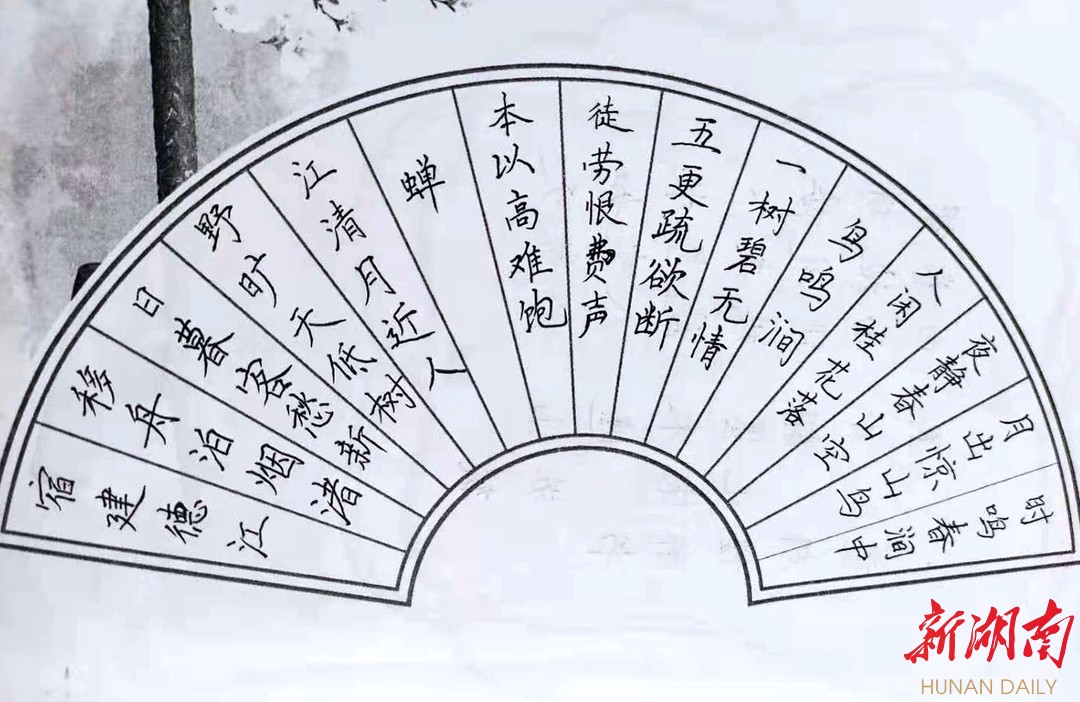 宿建德江
移舟泊烟渚
日暮客愁新
野旷天低树
江清月近人
蝉
本以高难饱
徒劳恨费声
五更疏欲断
一树碧无情
鸟鸣涧
人闲桂花落
夜静春山空
月出惊山鸟
时鸣春涧中
新湖南
HUNAN DAILY